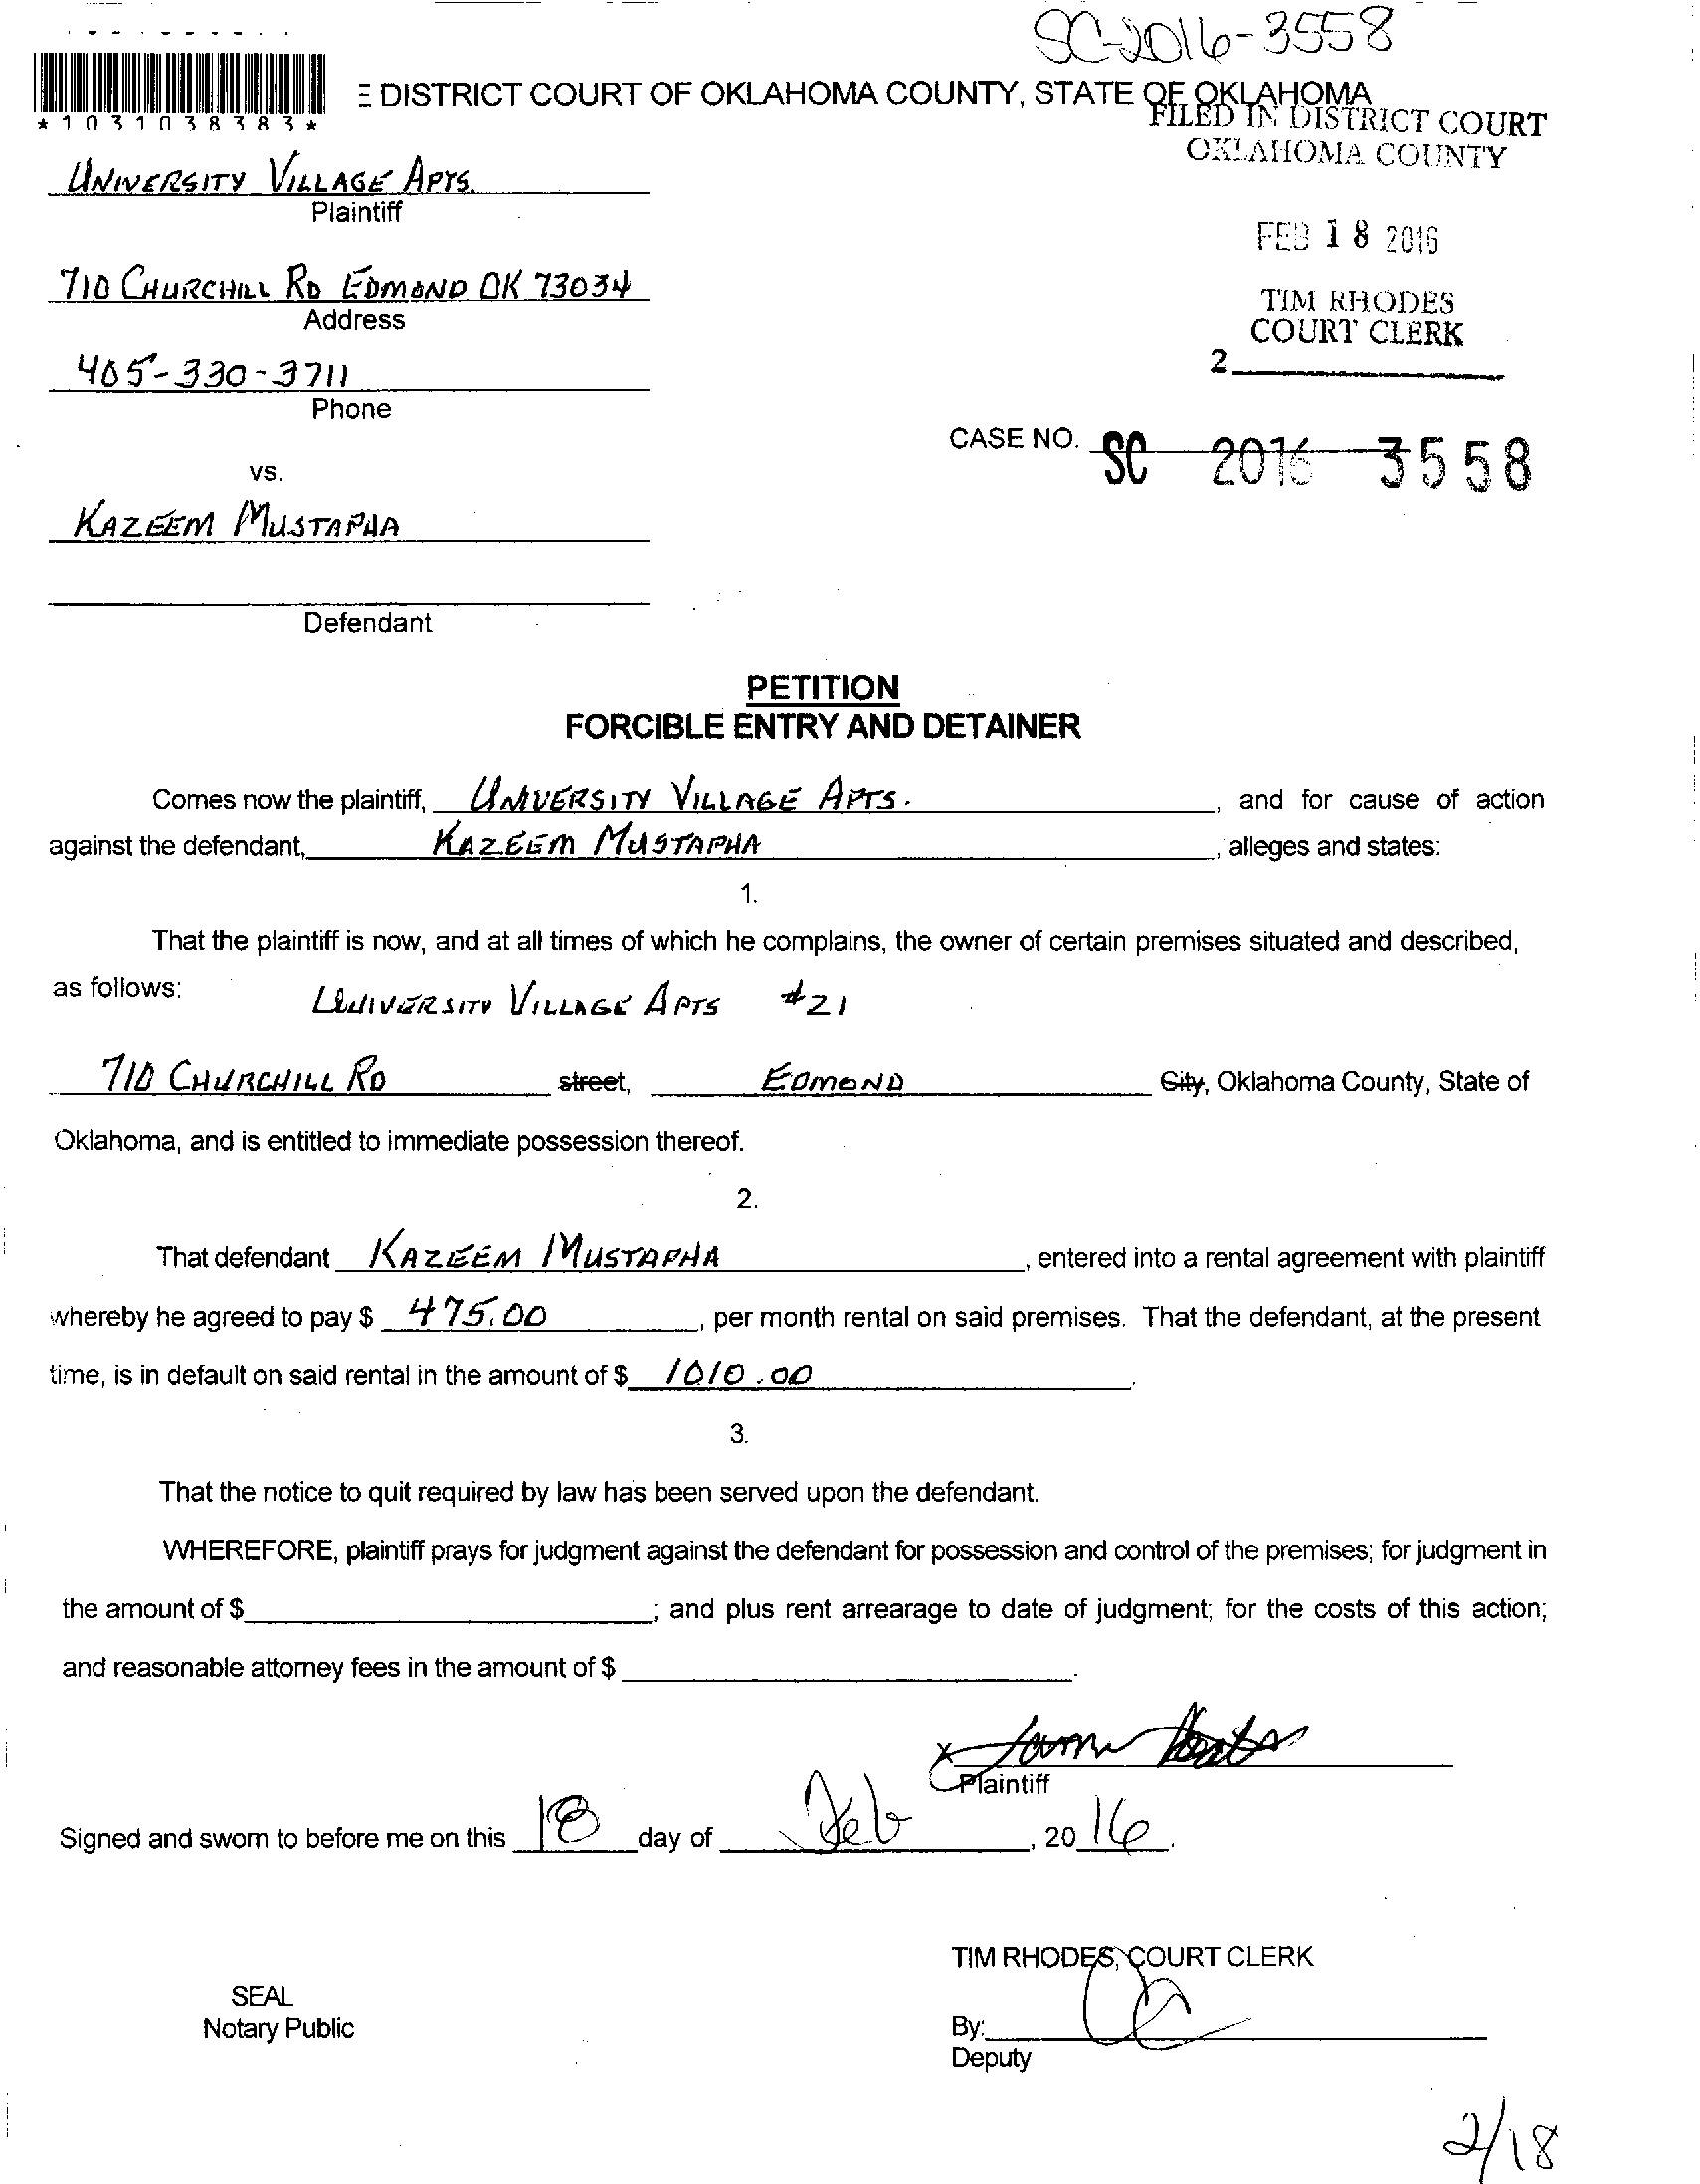 SC-2016-3558
E DISTRICT COURT OF OKLAHOMA COUNTY, STATE OF OKLAHOMA
*1031038383*
FILED IN DISTRICT COURT
OKLAHOMA COUNTY
UNIVERSITY VILLAGE APTS.
Plaintiff
FEB 18 2016
710 CHURCHILL RD EDMOND OK 73034
Address
TIM RHODES
COURT CLERK
405-330-3711
2
Phone
CASE NO. SC 2016 3558
vs.
KAZEEM MUSTAPHA
Defendant
PETITION
FORCIBLE ENTRY AND DETAINER
Comes now the plaintiff, UNIVERSITY VILLAGE APTS. , and for cause of action
against the defendant, KAZEEM MUSTAPHA , alleges and states:
1.
That the plaintiff is now, and at all times of which he complains, the owner of certain premises situated and described,
as follows: UNIVERSITY VILLAGE APTS #21
710 CHURCHILL RD street, EDMOND City, Oklahoma County, State of
Oklahoma, and is entitled to immediate possession thereof.
2.
That defendant KAZEEM MUSTAPHA , entered into a rental agreement with plaintiff
whereby he agreed to pay $ 475.00 , per month rental on said premises. That the defendant, at the present
time, is in default on said rental in the amount of $ 1010.00 .
3.
That the notice to quit required by law has been served upon the defendant.
WHEREFORE, plaintiff prays for judgment against the defendant for possession and control of the premises; for judgment in
the amount of $ ; and plus rent arrearage to date of judgment; for the costs of this action;
and reasonable attorney fees in the amount of $ .
x
Plaintiff
Signed and sworn to before me on this 18 day of Feb , 20 16 .
TIM RHODES, COURT CLERK
SEAL
Notary Public
By:
Deputy
2/18